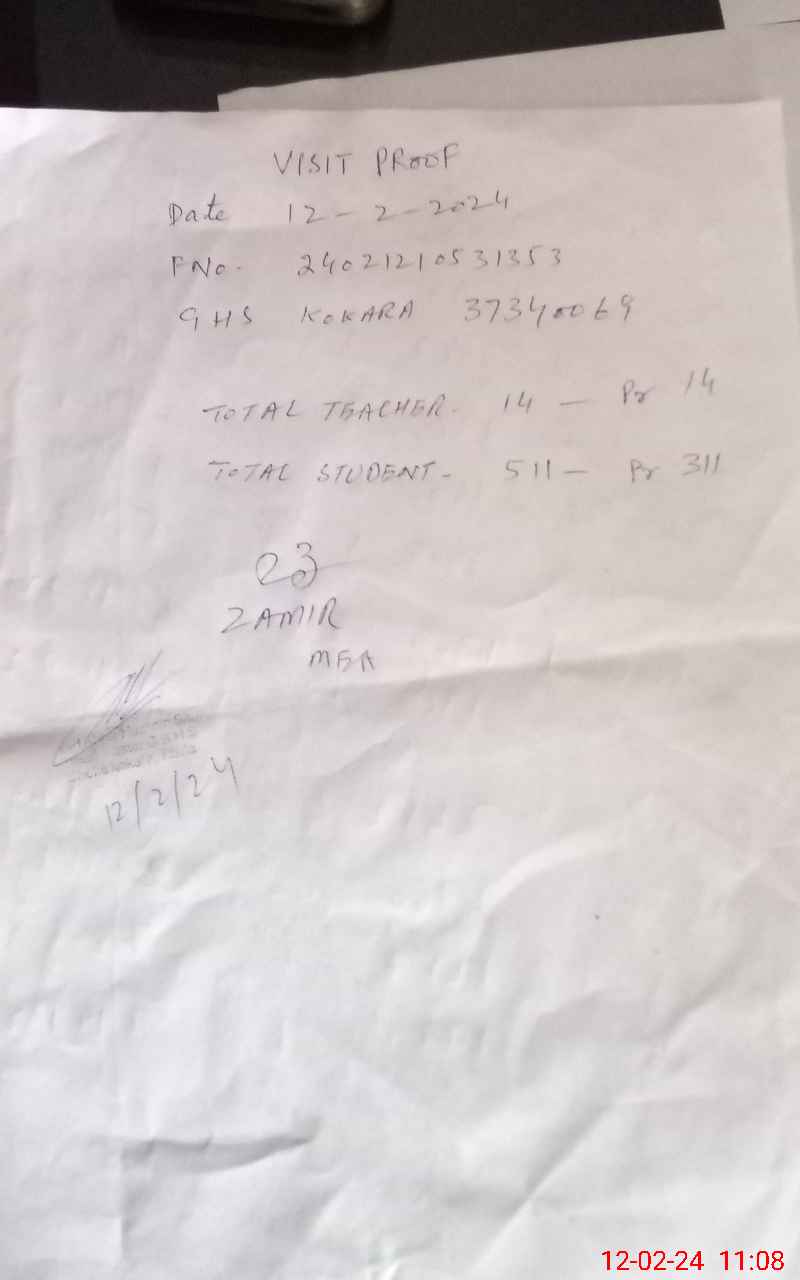 VISIT PROOF
Date 12-2-2024
FNo. 24021210531353
GHS KOKARA 37340069
TOTAL TEACHER. 14 — Pr 14
TOTAL STUDENT- 511 — Pr 311
ZAMIR
MEA
12/2/24
12-02-24 11:08